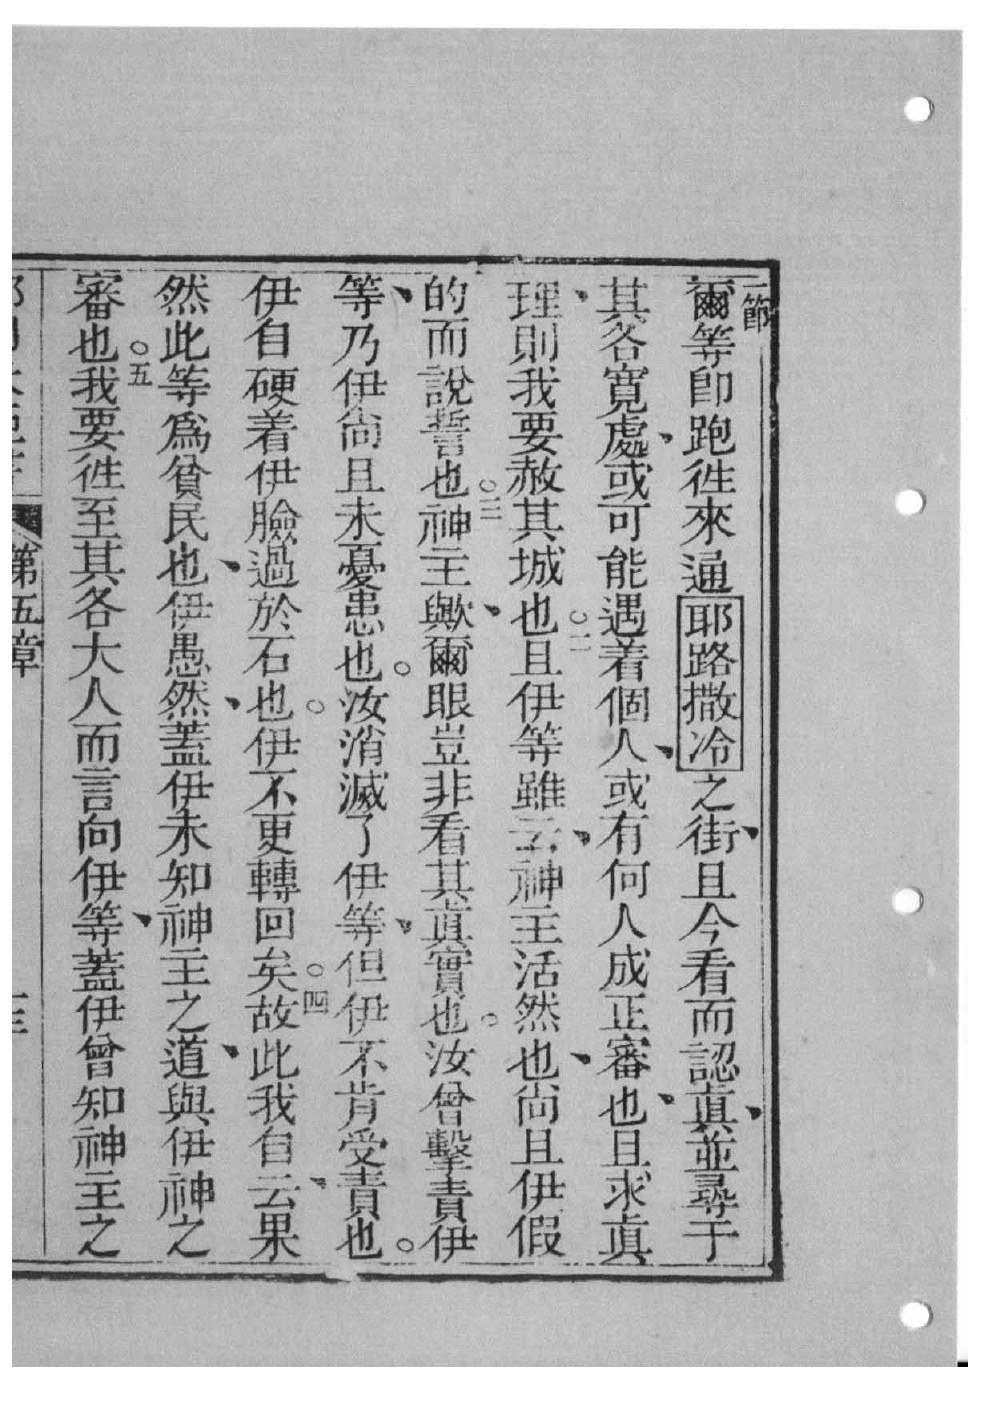 一節
爾等卽跑徃來通耶路撒冷之街、且今看而認眞、並尋于
其各寬處、或可能遇着個人、或有何人成正審也、且求眞
理、則我要赦其城也。二且伊等雖云、神主活然也、尚且伊假
的而說誓也。三神主歟、爾眼豈非看其眞實也。汝曾擊責伊
等、乃伊尚且未憂患也。汝消滅了伊等、但伊不肯受責也。
伊自硬着伊臉過於石也。伊不更轉回矣。四故此我自云、果
然此等爲貧民也、伊愚然、蓋伊未知神主之道、與伊神之
審也。五我要徃至其各大人而言向伊等、蓋伊曾知神主之
第五章